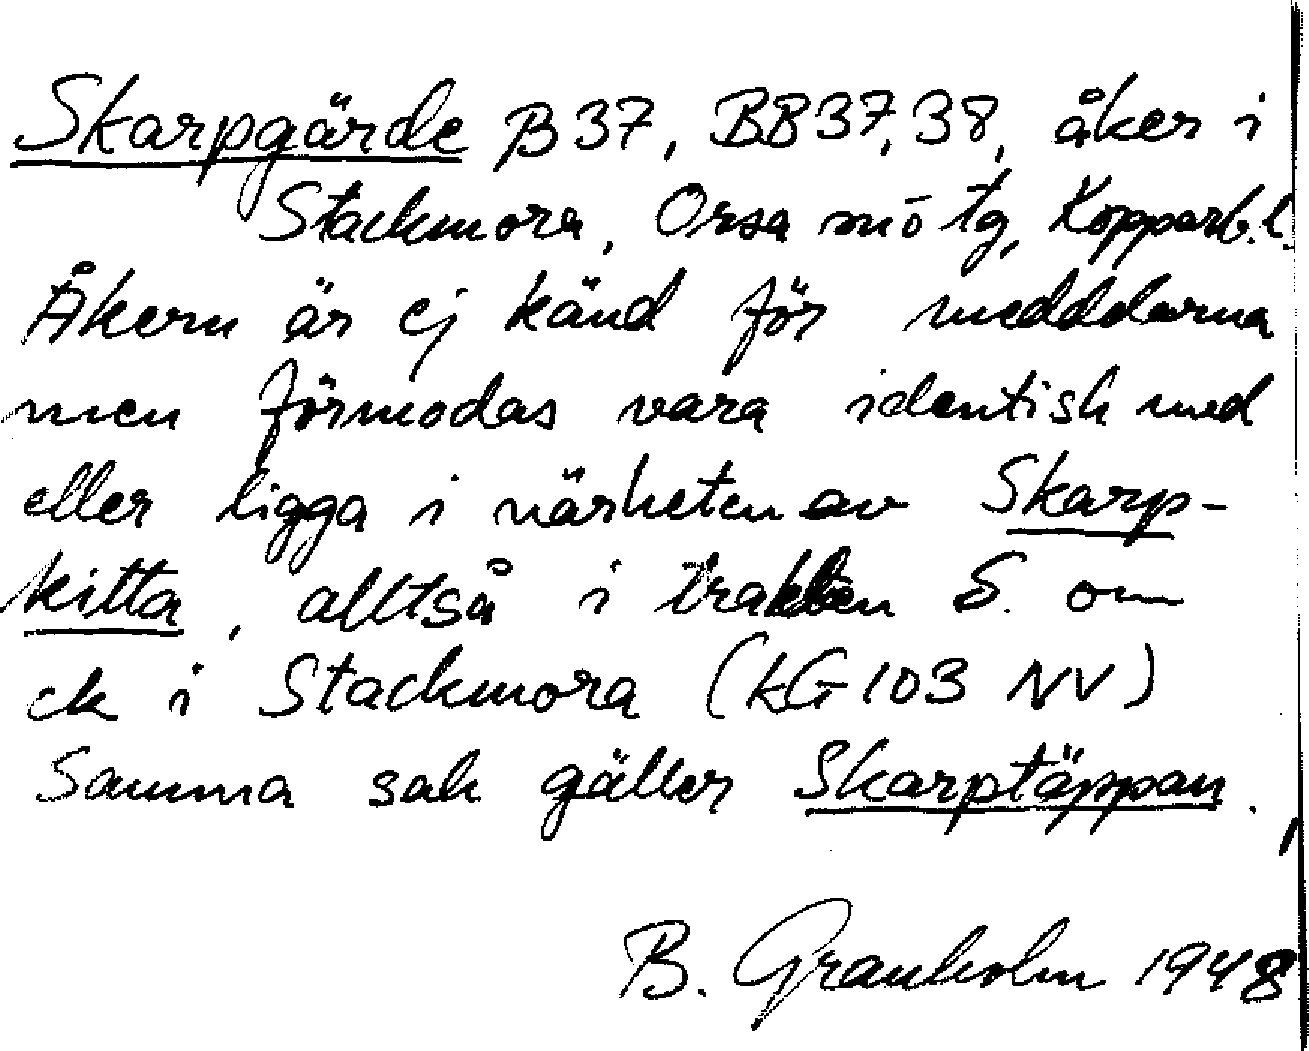 Skarpgärde B37, BB37, 38, åker i
Stackmora, Orsa sn o tg, Kopparb. l.
Åkern är ej känd för meddelarna
men förmodas vara identisk med
eller ligga i närheten av Skarp-
kitta, alltså i trakten S. om
ek i Stackmora (kG 103 NV)
Samma sak gäller Skarptäppan.
B. Granholm 1948